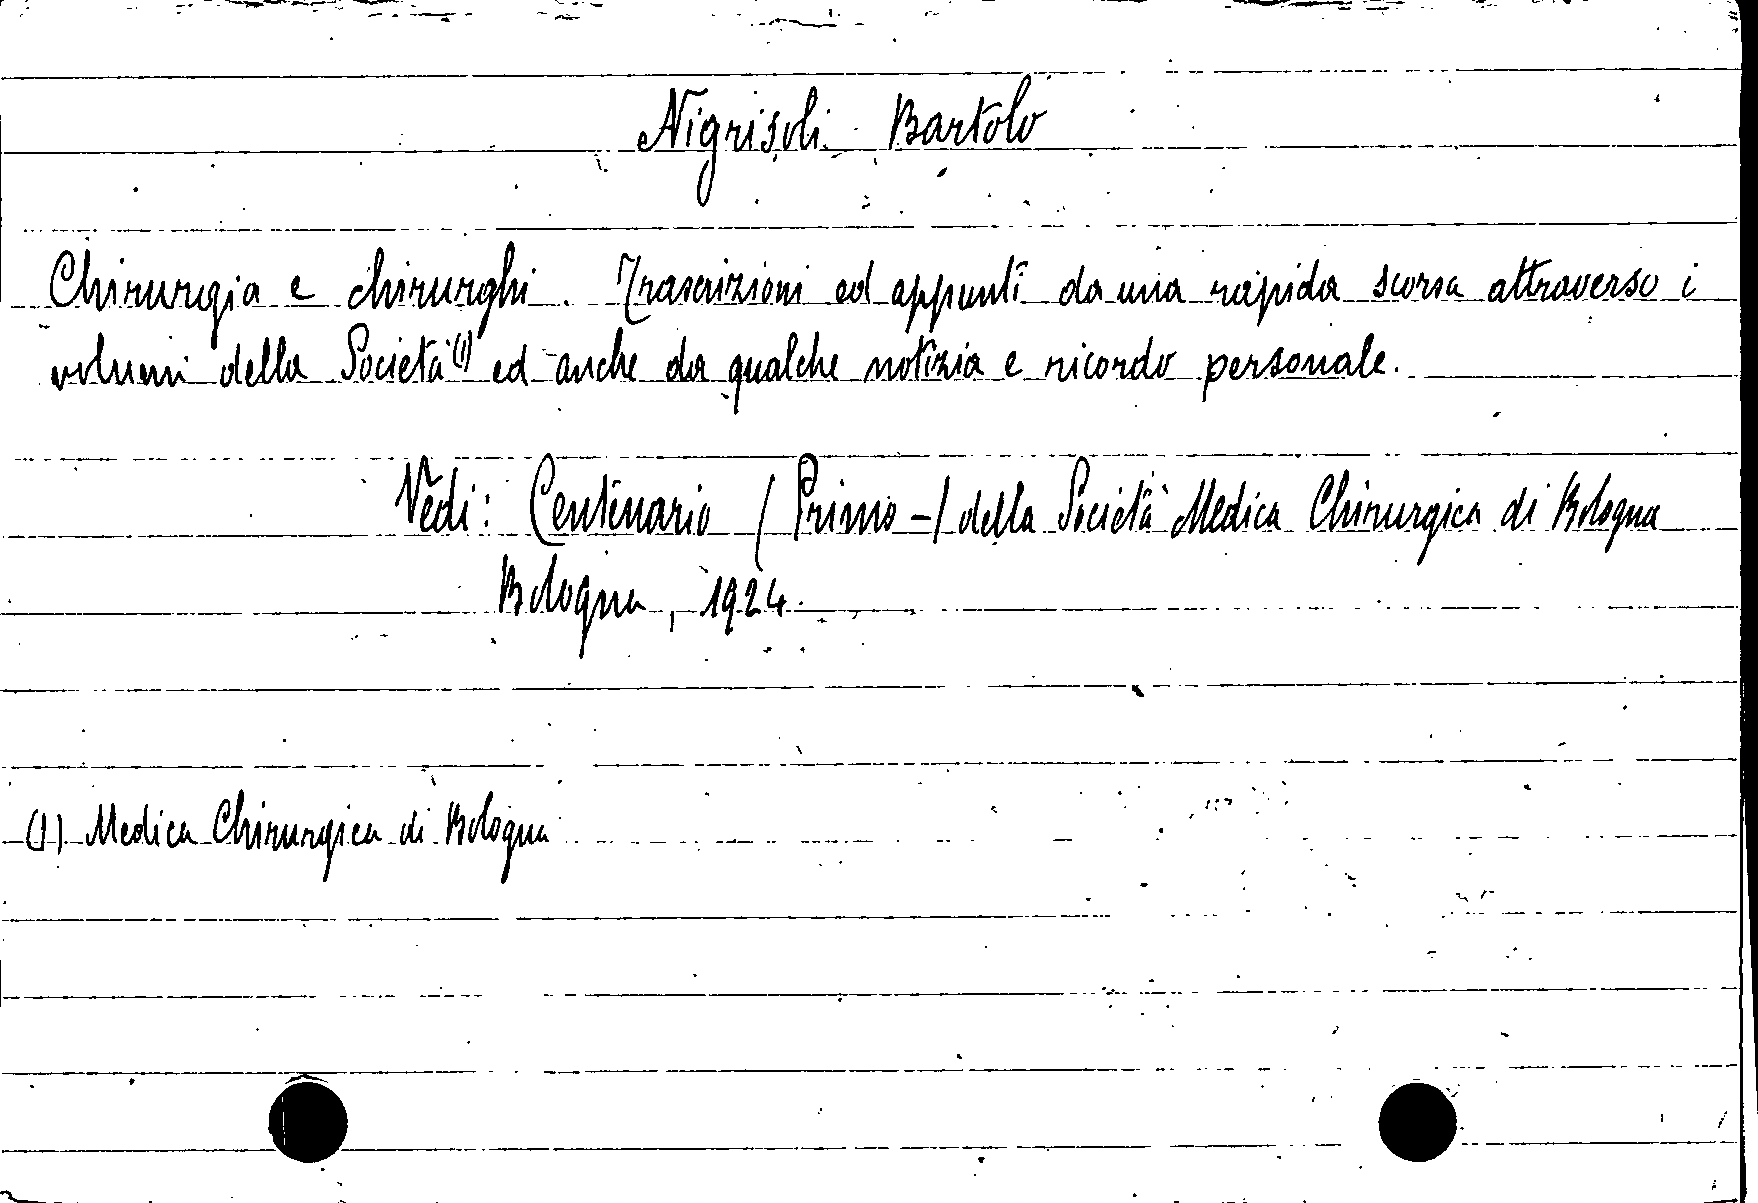 Nigrisoli Bartolo
Chirurgia e chirurghi. Trascrizioni ed appunti da una rapida scorsa attraverso i
volumi della Società (1) ed anche da qualche notizia e ricordo personale.
Vedi: Centenario (Primo -) della Società Medica Chirurgica di Bologna
Bologna, 1924.
(1) Medica Chirurgica di Bologna